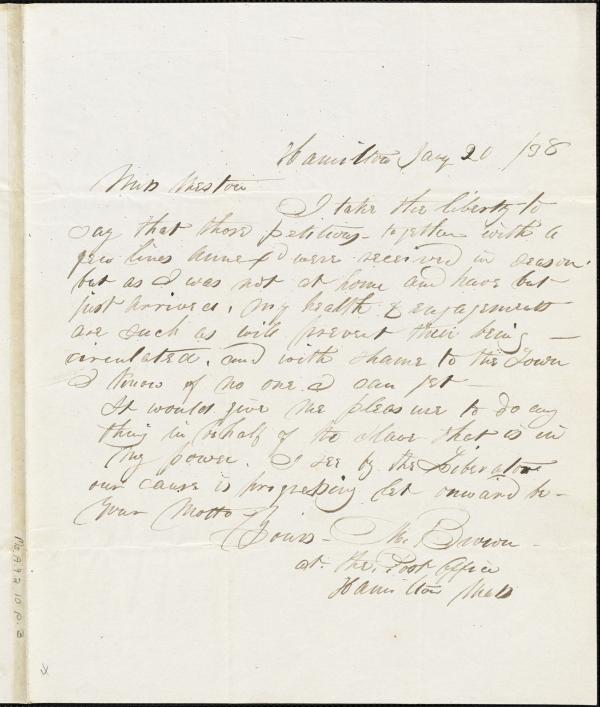 Hamilton Jany 20 /38
Miss Weston
I take the liberty to
say that those petitions - together with a
few lines annexd were received in season.
but as I was not at home and have but
just arrived, my health & engagements
are such as will prevent their being -
circulated, and with shame to the Town
I know of no one I can get -
It would give me pleasure to do any
thing in behalf of the slave that is in
my power. I see by the Liberator
our cause is progressing let onward be -
your Motto
Yours - Brown -
at the Post Office
Hamilton Mass
Ms. A.9.2 10 p. 3